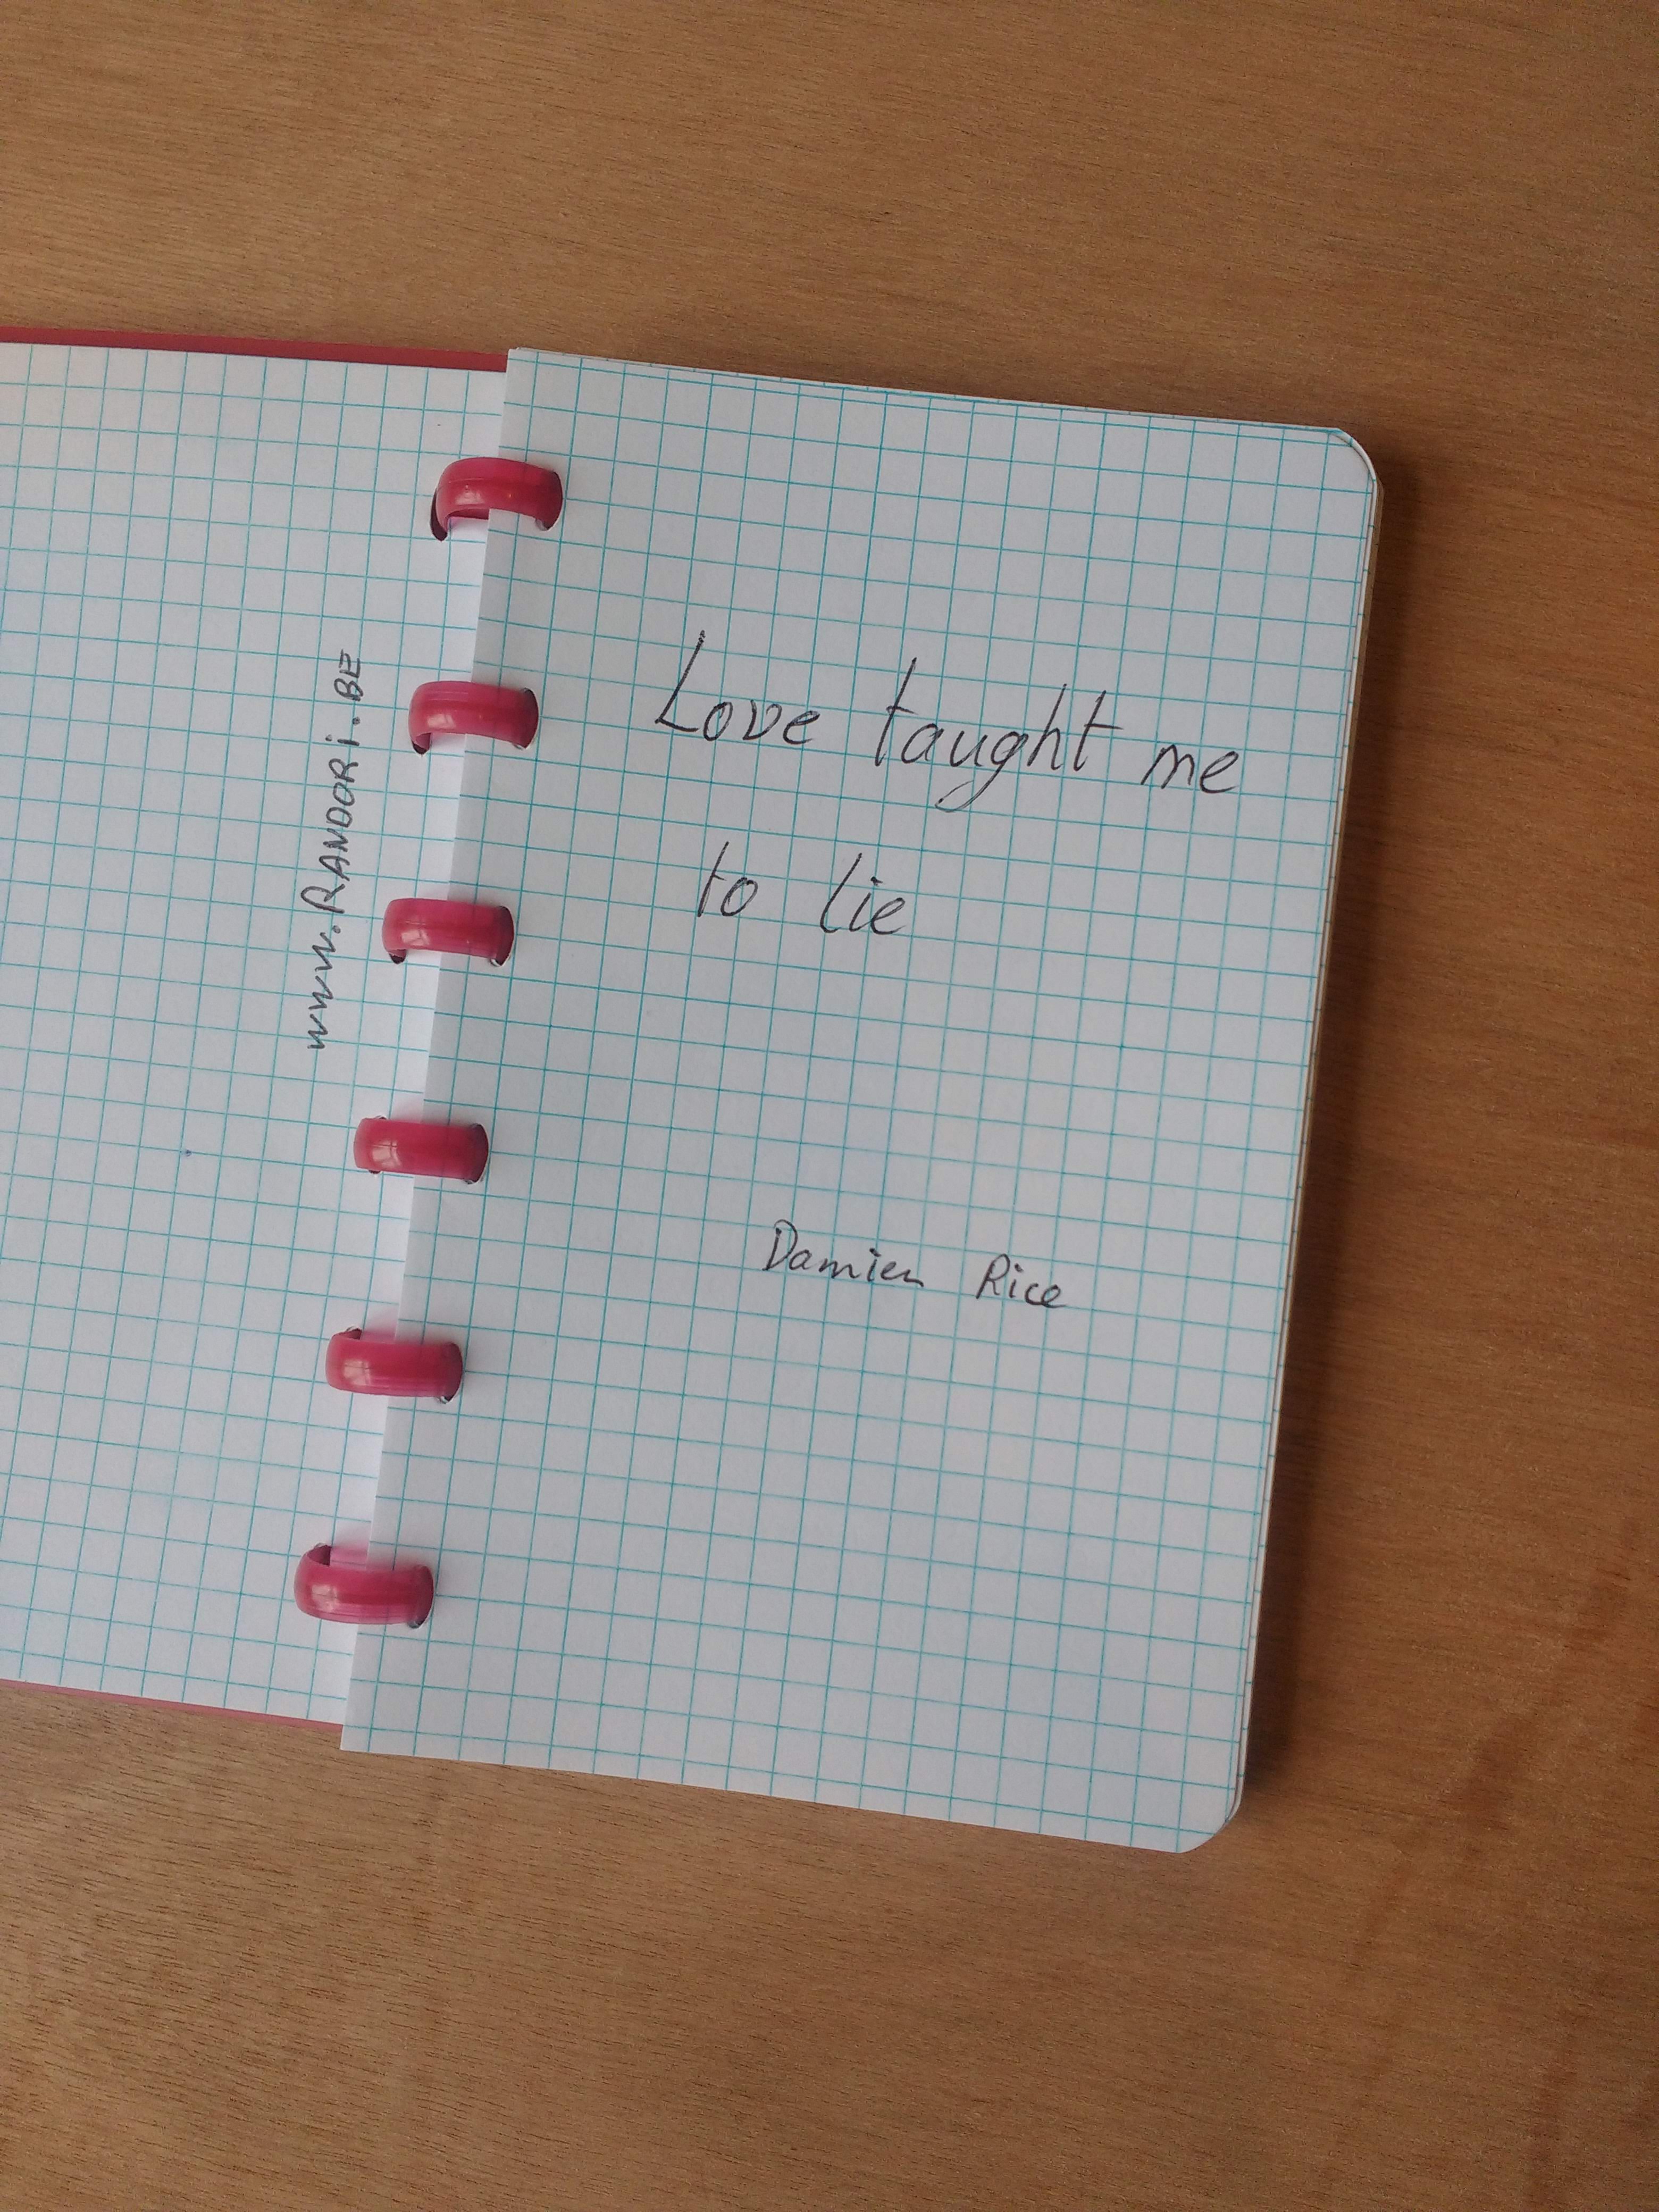 www.RANDORi.BE
Love taught me
to lie
Damien Rice